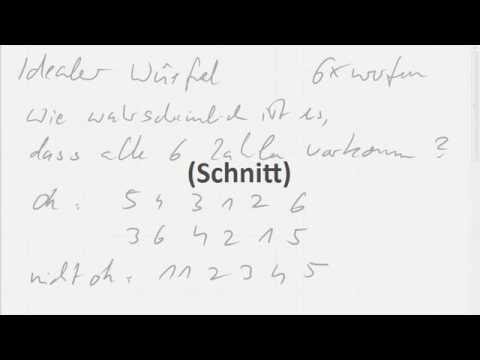 Idealer Würfel 6x werfen
Wie wahrscheinlich ist es,
dass alle 6 Zahlen vorkommen?
(Schnitt)
ok: 5 4 3 1 2 6
3 6 4 2 1 5
nicht ok: 1 1 2 3 4 5